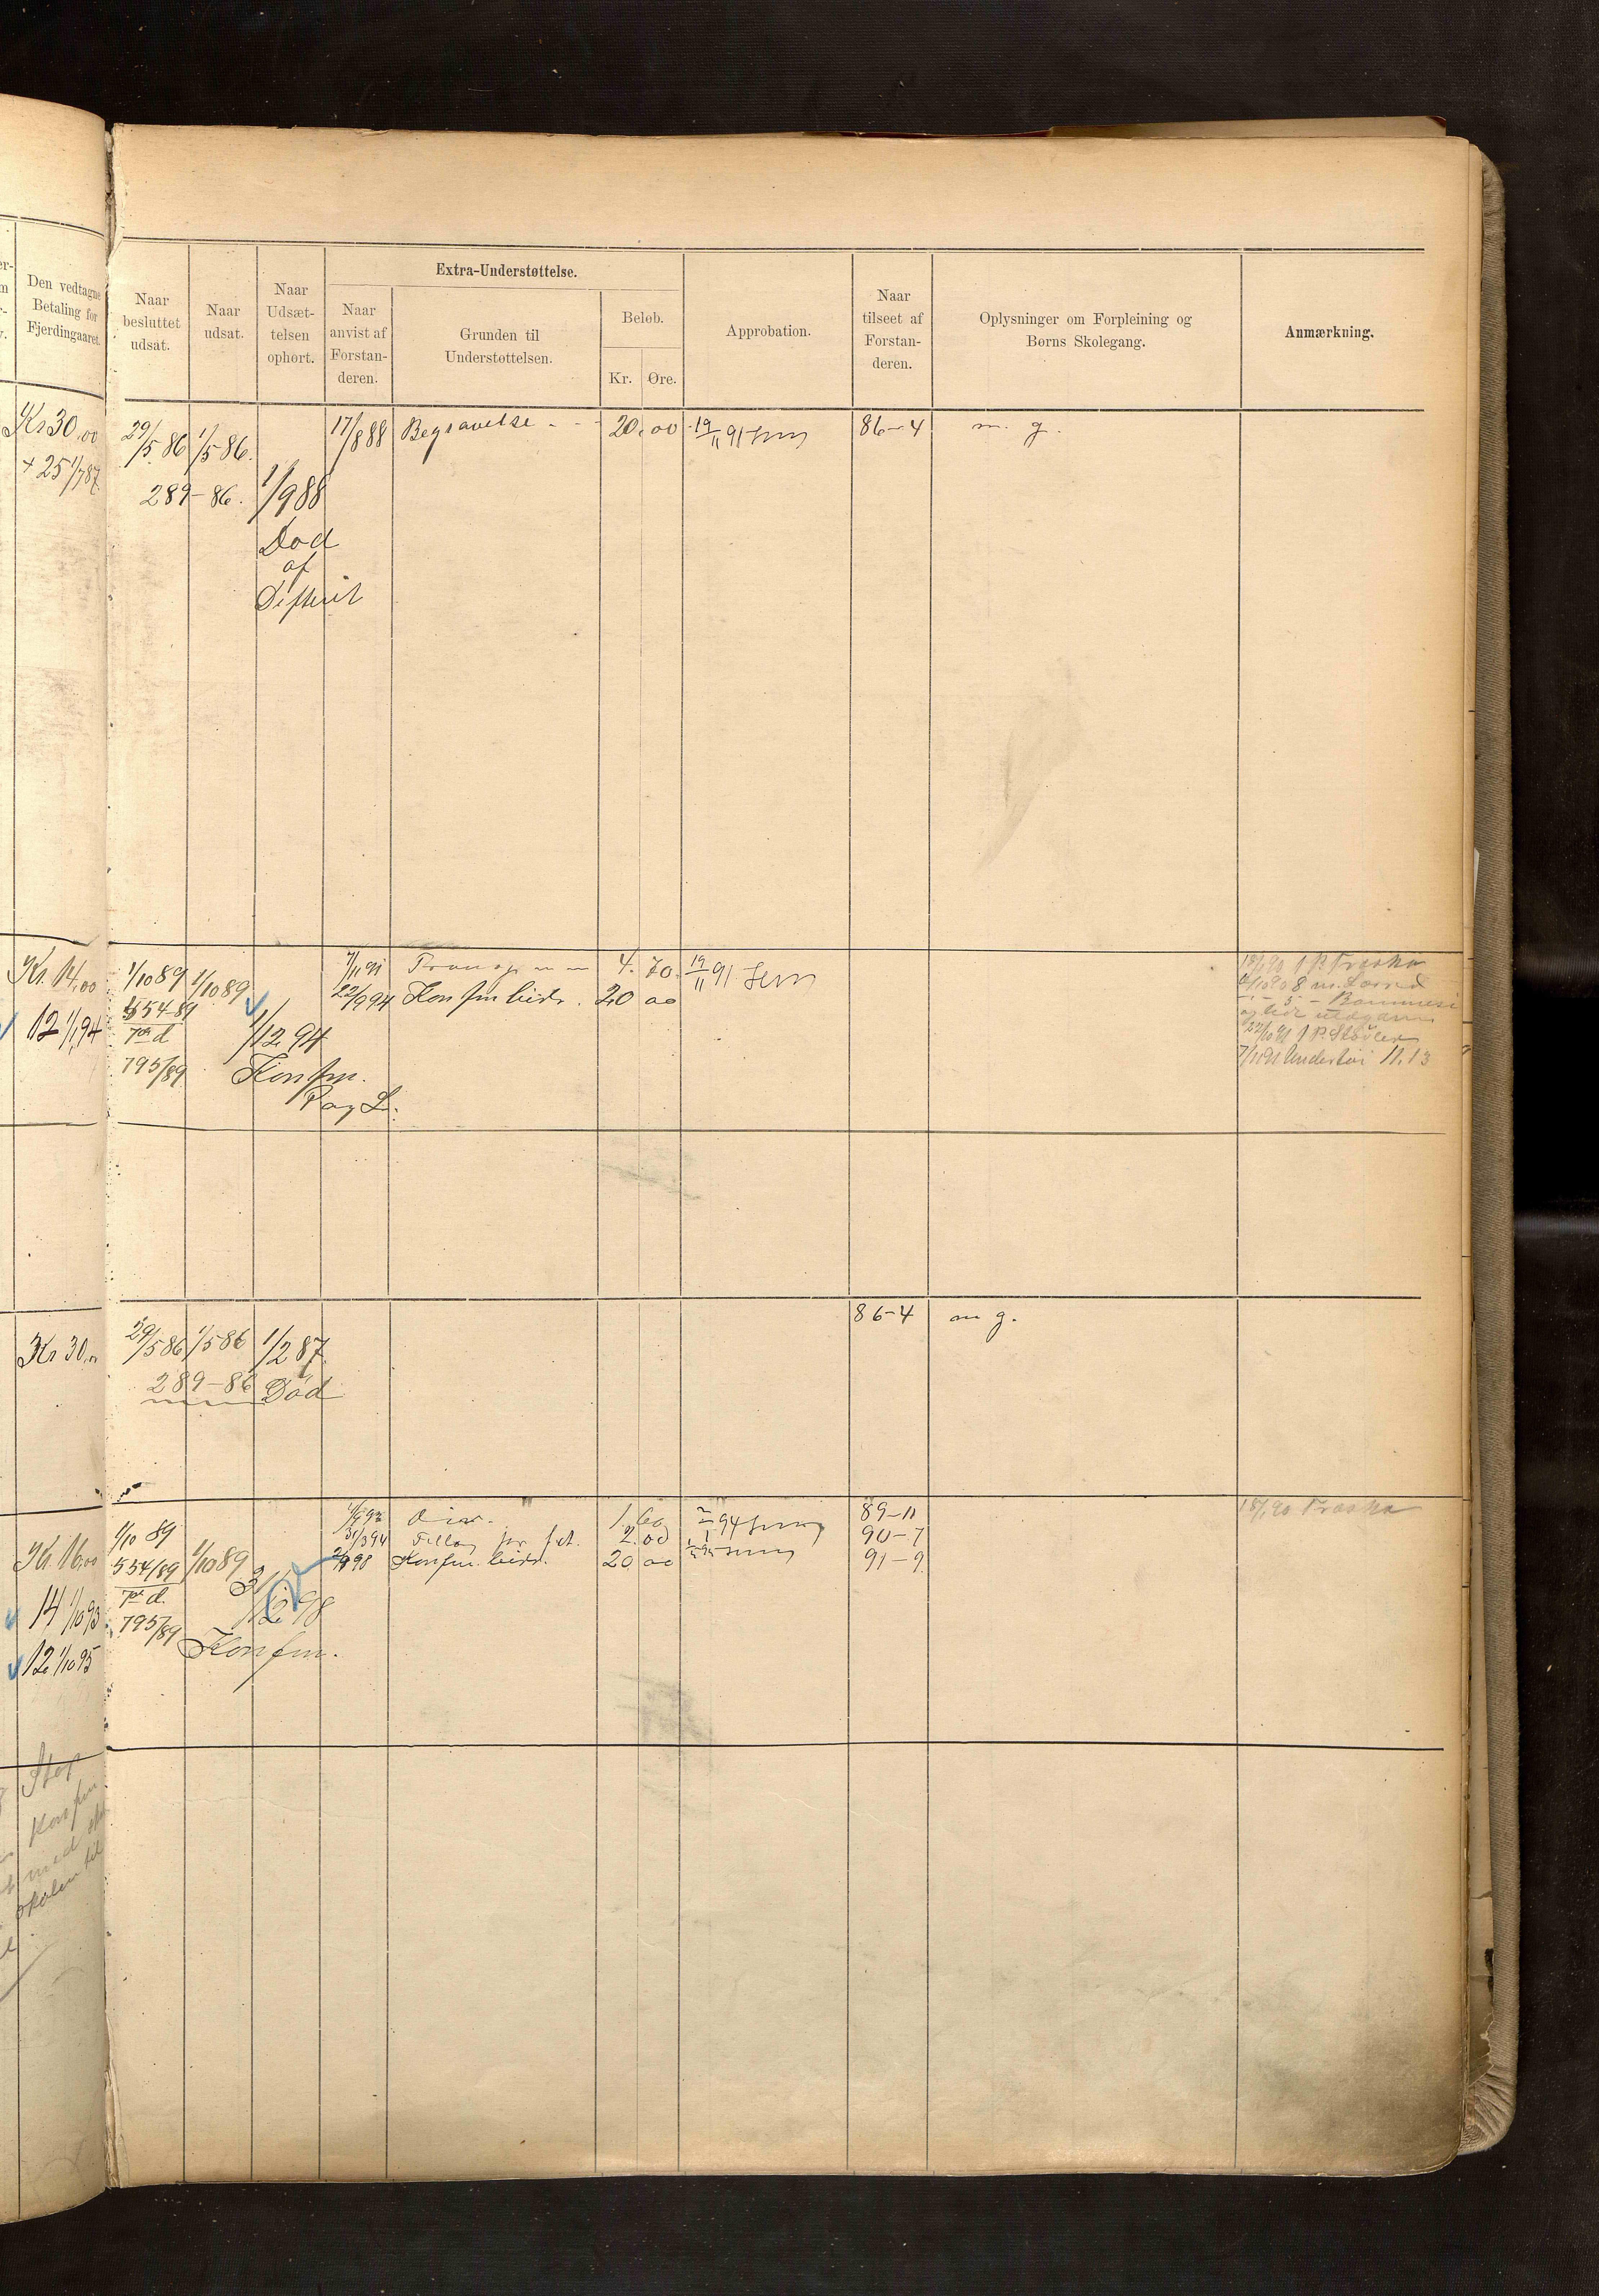 Den vedtagne
Betaling for
Fjerdingaaret.
Naar
besluttet
udsat.
Naar
udsat.
Naar
Udsæt-
telsen
ophørt.
Extra-Understøttelse.
Naar
anvist af
Forstan-
deren.
Grunden til
Understøttelsen.
Beløb.
Kr.
Øre.
Approbation.
Naar
tilseet af
Forstan-
deren.
Oplysninger om Forpleining og
Børns Skolegang.
Anmærkning.
Kr 30,00
+ 25 1/7 87
29/5 86 1/5 86. 17/8 88 Begravelse 20,00 19/11 91 86-4 m. g.
289-86. 1/9 88
Død
af
Difterit
Kr. 14,00 1/10 89 1/10 89 7/11 91 4. 70. 19/11 91
22/9 94 Konfmbidr. 20 00
12 1/1 94 554-89
1/12 94
795/89 Konfm.
22/10 91 1 P. Støvler
7/11 91 Undertøi 11.13
86-4 m g.
Kr 30,00 29/5 86 1/5 86 1/2 87
289-86 Død
89-11
31/3 94 2.00 90-7
Kr. 16,00 1/10 89 98 Konfm.bidr. 20 00 91-9
554/89 1/10 89
14 1/10 93 795/89 3/12 98
12 1/10 95 Konfm.
Stop
Konfm
med
skolen til